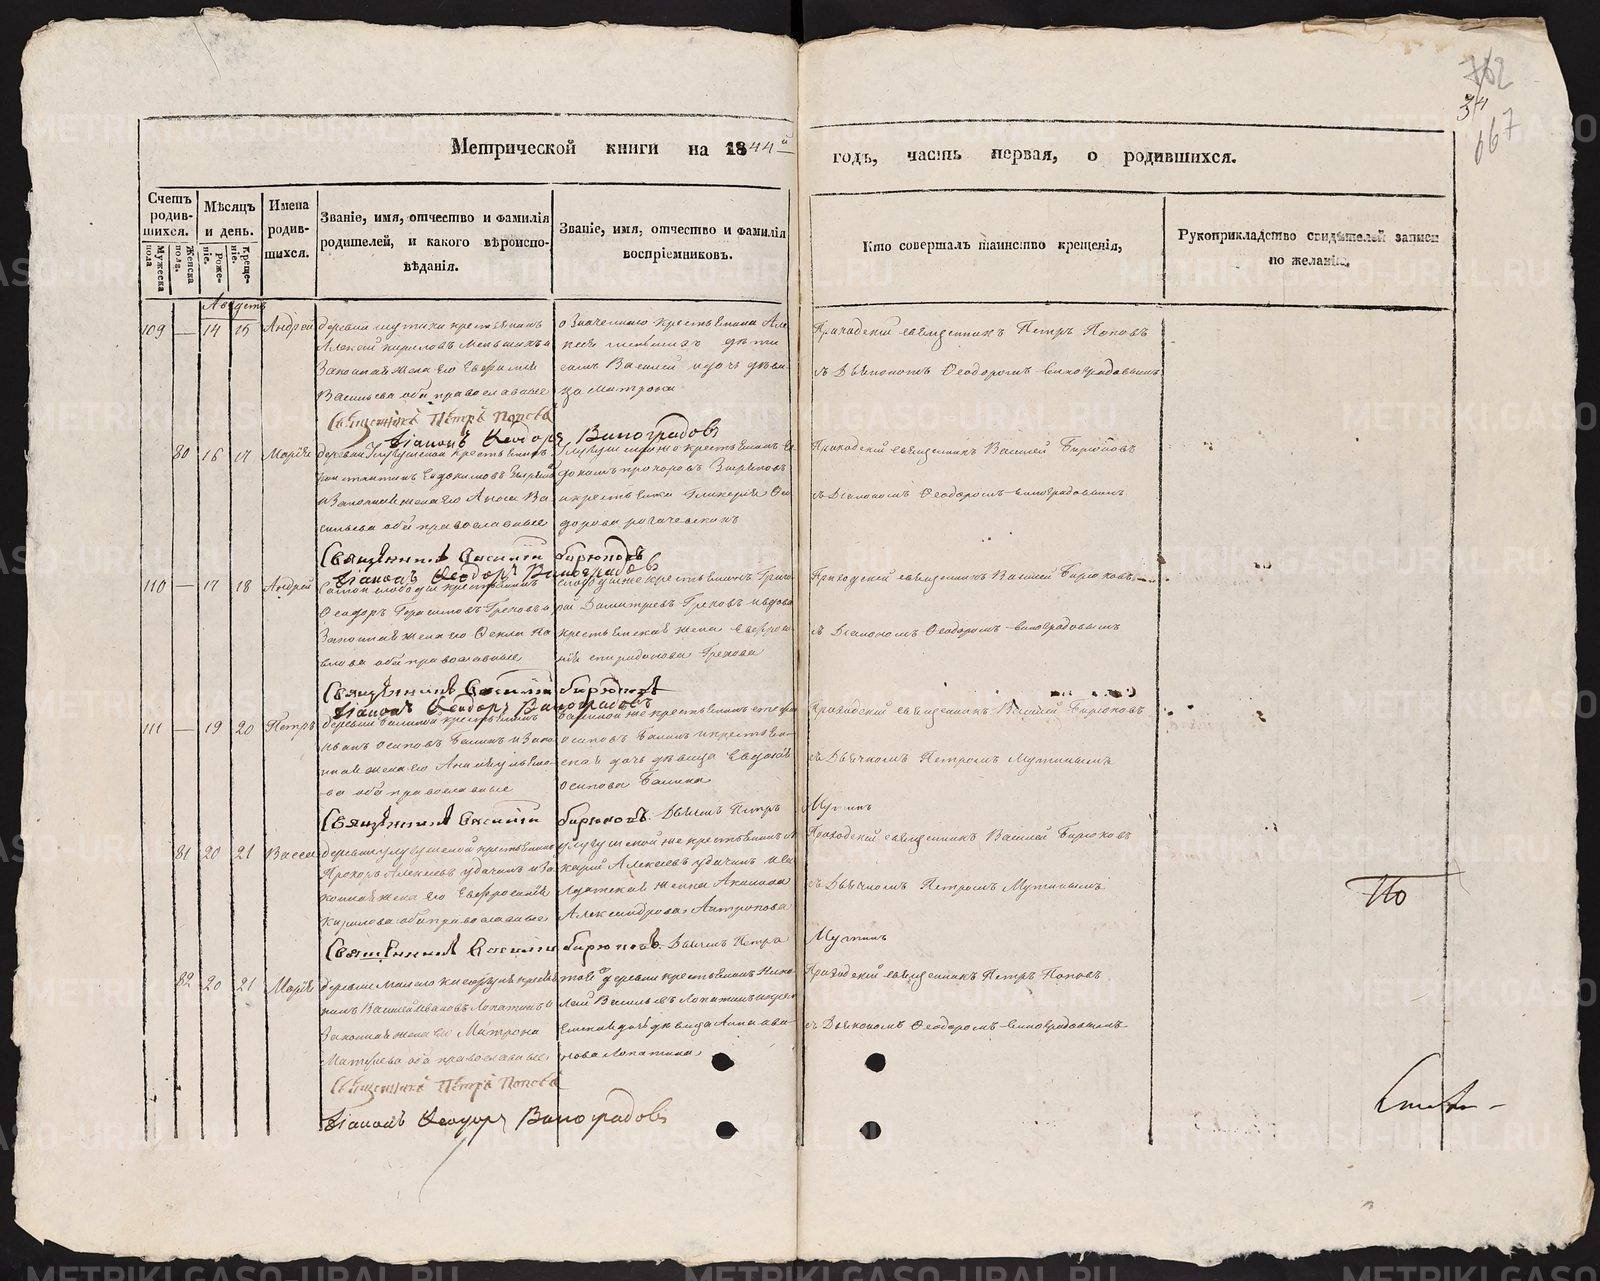 762
34
667
Метрической книги на 1844й
годъ, часть первая, о родившихся.
Счетъ родившихся.
Мужеска пола
Женска пола.
Мѣсяцъ и день.
Рожденіе.
Крещеніе.
Имена родившихся.
Званіе, имя, отчество и фамилія
родителей, и какого вѣроиспо-
вѣданія.
Званіе, имя, отчество и фамилія
воспріемниковъ.
Кто совершалъ таинство крещенія,
Рукоприкладство свидѣтелей записи
по желанію.
Августъ
109 — 14 15 Андрей
деревни крестьянинъ
Алексей Кириловъ Меньшихъ и
Законная жена его Евфимія
Васильева оба православные
означеннаго крестьянина Але
дѣти
сынъ Василей и дочь дѣви-
ца Матрона
Приходскій священникъ Петръ Поповъ
съ Дьякономъ Ѳеодоромъ Виноградовымъ
Священникъ Петръ Поповъ
Діаконъ Ѳеодоръ Виноградовъ
80 16 17 Марія
деревни крестьянинъ
Евдокимовъ
и Законная жена его Анна Ва
сильева оба православные
крестьянинъ Ев
докимъ Прохоровъ
и крестьянка Гликерія Ѳео
дорова
Приходскій священникъ Василей Бирюковъ
съ Діакономъ Ѳеодоромъ Виноградовымъ
Священникъ Василій Бирюковъ
Діаконъ Ѳеодоръ Виноградовъ
110 — 17 18 Андрей
Самой слободы крестьянинъ
Ѳеодоръ Герасимовъ Греховъ и
Законная жена его Ѳекла Па
влова оба православные
слободы же крестьянинъ Григо
рій Дмитріевъ Греховъ и вдова
крестьянская жена Евфроси-
нія Спиридонова Грехова
Приходскій священникъ Василей Бирюковъ
съ Діакономъ Ѳеодоромъ Виноградовымъ
Священникъ Василій Бирюковъ
Діаконъ Ѳеодоръ Виноградовъ
111 — 19 20 Петръ
деревни Балиной крестьянинъ
Иванъ Осиповъ Балинъ и Зако
нная жена его Анна
ва оба православные
Балиной же крестьянинъ
Осиповъ Балинъ и крестьян-
ская дочь дѣвица Евдокія
Осипова Балина
Приходскій священникъ Василей Бирюковъ
съ Дьячкомъ Петромъ Мутинымъ
Священникъ Василій Бирюковъ. Дьячекъ Петръ Мутинъ
81 20 21 Васса
деревни крестьянинъ
Прохоръ Алексеевъ Удачинъ и За
конная жена его Евфросинія
Кирилова оба православные
же крестьянинъ
Алексеевъ Удачинъ и
жена Акилина
Александрова Антропова
Приходскій священникъ Василей Бирюковъ
съ Дьячкомъ Петромъ Мутинымъ
По
Священникъ Василій Бирюковъ. Дьячекъ Петръ Мутинъ
82 20 21 Марія
деревни крестья
нинъ Василей Ивановъ Лопатинъ и
Законная жена его Матрона
Матвѣева оба православные
той деревни крестьянинъ Нико
лай Васильевъ Лопатинъ и крест
янская дочь дѣвица Анна Ива-
нова Лопатина
Приходскій священникъ Петръ Поповъ
съ Дьякономъ Ѳеодоромъ Виноградовымъ
Священникъ Петръ Поповъ
Діаконъ Ѳеодоръ Виноградовъ
METRIKI.GASO-URAL.RU